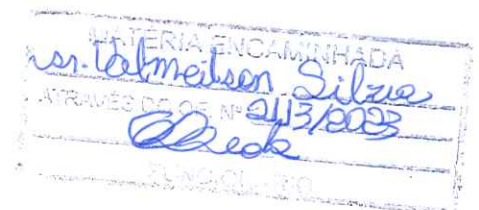 MATÉRIA ENCAMINHADA
sr. Valmeilson Silva
ATRAVÉS DO OF. Nº 2113/2023